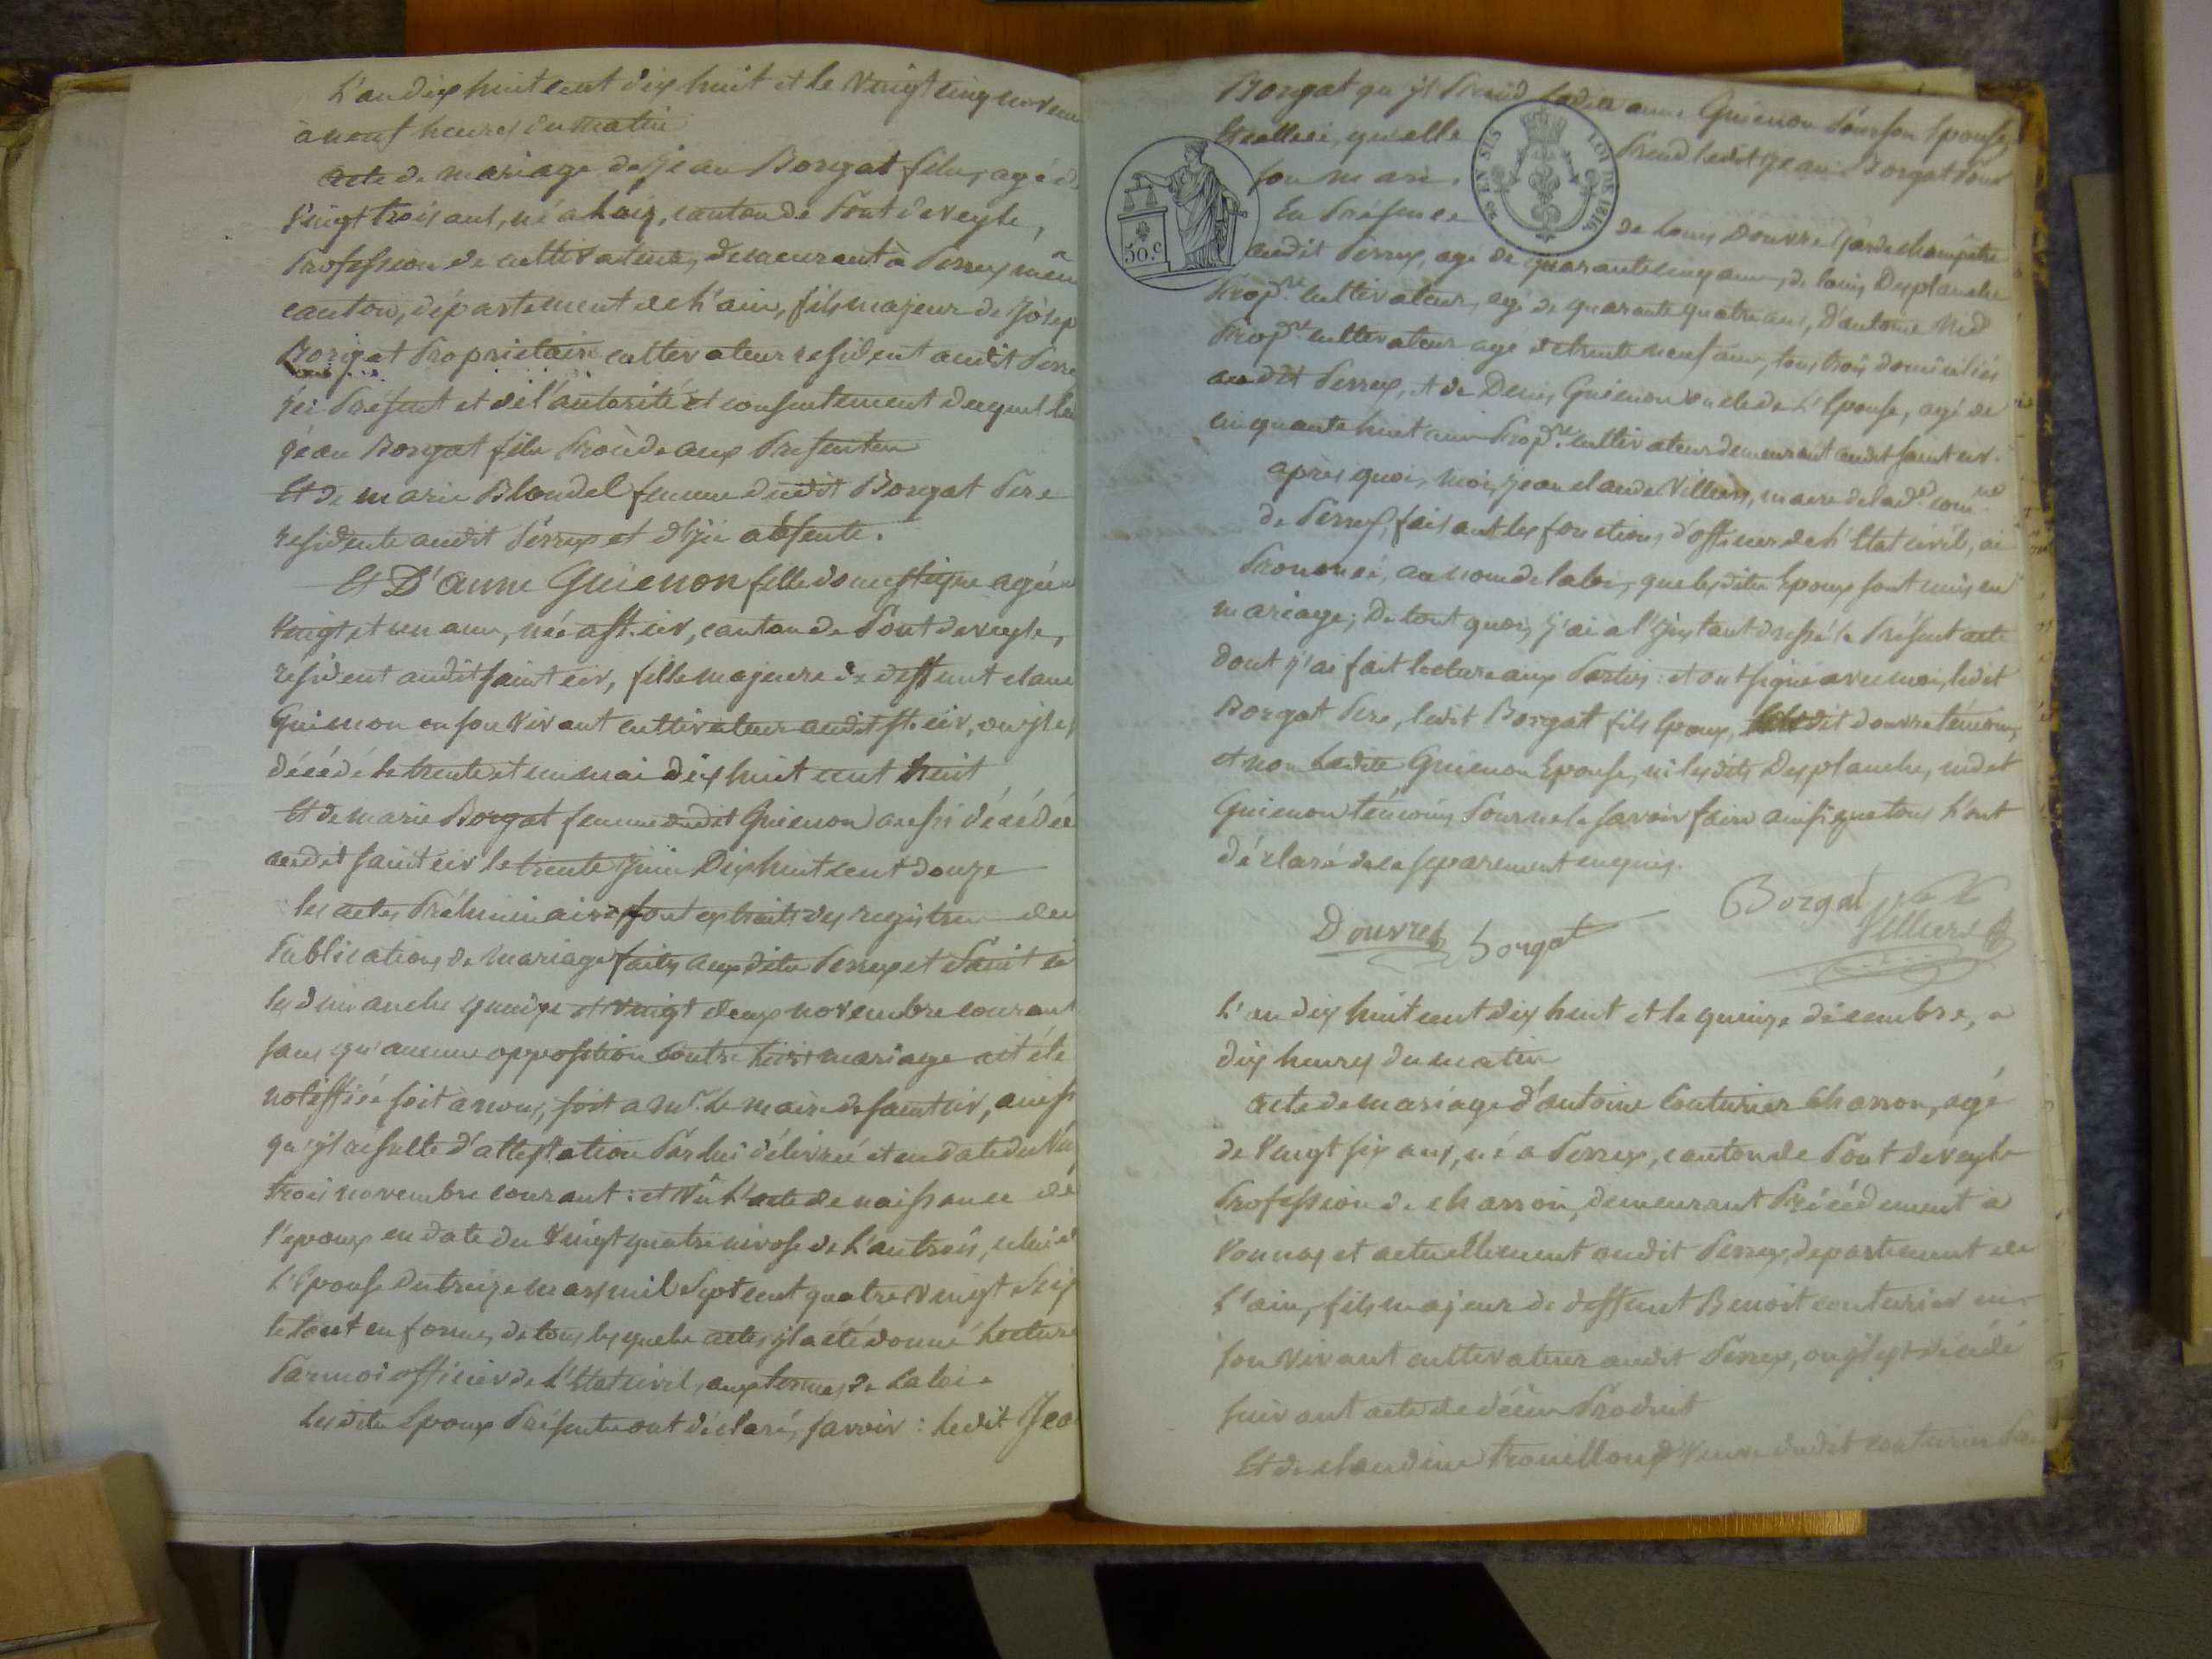 L'an dix huit cent dix huit et le vingt cinq novem
à neuf heures du matin
acte de mariage de jean Borgat fils, agé d
vingt trois ans, né a Laiz, canton de Pont de veyle,
Profession de cultivateur, demeurant à Perrex même
canton, département de L'ain, fils majeur de josep
Borgat Propriétaire cultivateur résident audit Perre
ici Présent et de l'autorité et consentement duquel led
jean Borgat fils Procède aux Présentes
Et de marie Blondel femme dudit Borgat Pere
residente audit Perrex et d'ici absente.
Et D'anne Guienon fille domestique agée
vingt et un ans, née a St. cir, canton de Pont de veyle,
résident audit saint cir, fille majeure de deffunt claude
Guienon en son vivant cultivateur audit St. cir, ou il es
décédé le trente et un mai dix huit cent huit
Et de marie Borgat femme dudit Guienon aussi décédée
audit saint cir le trente juin Dix huit cent douze
les actes Préliminaires sont extraits des registres des
Publications de mariage faites auxdits Perrex et Saint cir
les dimanches quinze et vingt deux novembre courant
sans qu'aucune opposition contre Ledit mariage ait été
notiffiée soit à nous, soit a mr. Le maire de saint cir, ainsi
qu'il résulte d'attestation Par lui délivrée et en date du vin
trois novembre courant : et vû L'acte de naissance de
l'époux en date du vingt quatre nivose de L'an trois, celui d
L'Epouse du treize mars mil sept cent quatre vingt dix
le tout en forme, de tous lesquels actes il a été donné Lecture
Par moi officier de L'Etat civil, aux termes de La loi.
Lesdits Epoux Présents ont déclaré, savoir : Ledit Jea
Borgat qu'il Prend Ladite anne Guienon Pour son Epouse,
Et celle ci, qu'elle Prend Ledit jean Borgat Pour
son mari.
En Présence de Louis Douvre Garde champêtre
audit Perrex, agé de quarante cinq ans, de Louis Desplanche
Propre. cultivateur, agé de quarante quatre ans, D'antoine Nidd
Propre. cultivateur agé de trente neuf ans, tous trois domiciliés
audit Perrex, et de Denis Guienon oncle de L'Epouse, agé de
cinquante huit ans Propre. cultivateur demeurant audit saint cir.
après quoi, moi, jean claude Villiers, maire de lad. comne
de Perrex, faisant les fonctions d'officier de L'Etat civil, ai
Prononcé, au nom de la loi, que lesdits Epoux sont unis en
mariage; De tout quoi, j'ai à l'instant dressé le Présent acte
dont j'ai fait lecture aux Parties : et ont signé avec moi, ledit
Borgat Pere, ledit Borgat fils Epoux, Ledit douvre témoin,
et non Ladite Guienon Epouse, ni lesdits Desplanche, nid et
Guienon témoins Pour ne le savoir faire ainsi que tous L'ont
déclaré de ce separement enquis.
Borgat
Villiers
Douvre Borgat
L'an dix huit cent dix huit et le quinze décembre, a
dix heures du matin
acte de mariage d'antoine Couturier Charron, agé
de vingt six ans, né a Perrex, canton de Pont de veyle
Profession de charron, demeurant Précédement a
Vonnas et actuellement audit Perrex, departement de
L'ain, fils majeur de deffunt Benoit couturier en
son vivant cultivateur audit Perrex, ou il est décédé
suivant acte de décès Produit
Et de claudine trouilloux veuve dudit couturier
50.c
EN SUS
LOI DE 1816